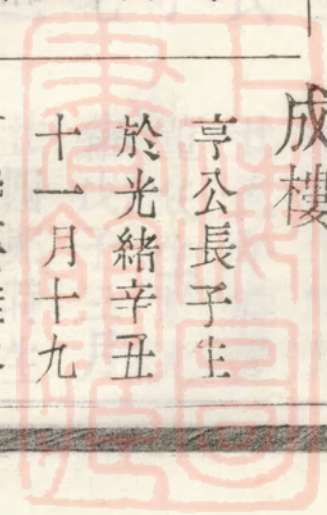 成樓
亨公長子生
於光緒辛丑
十一月十九